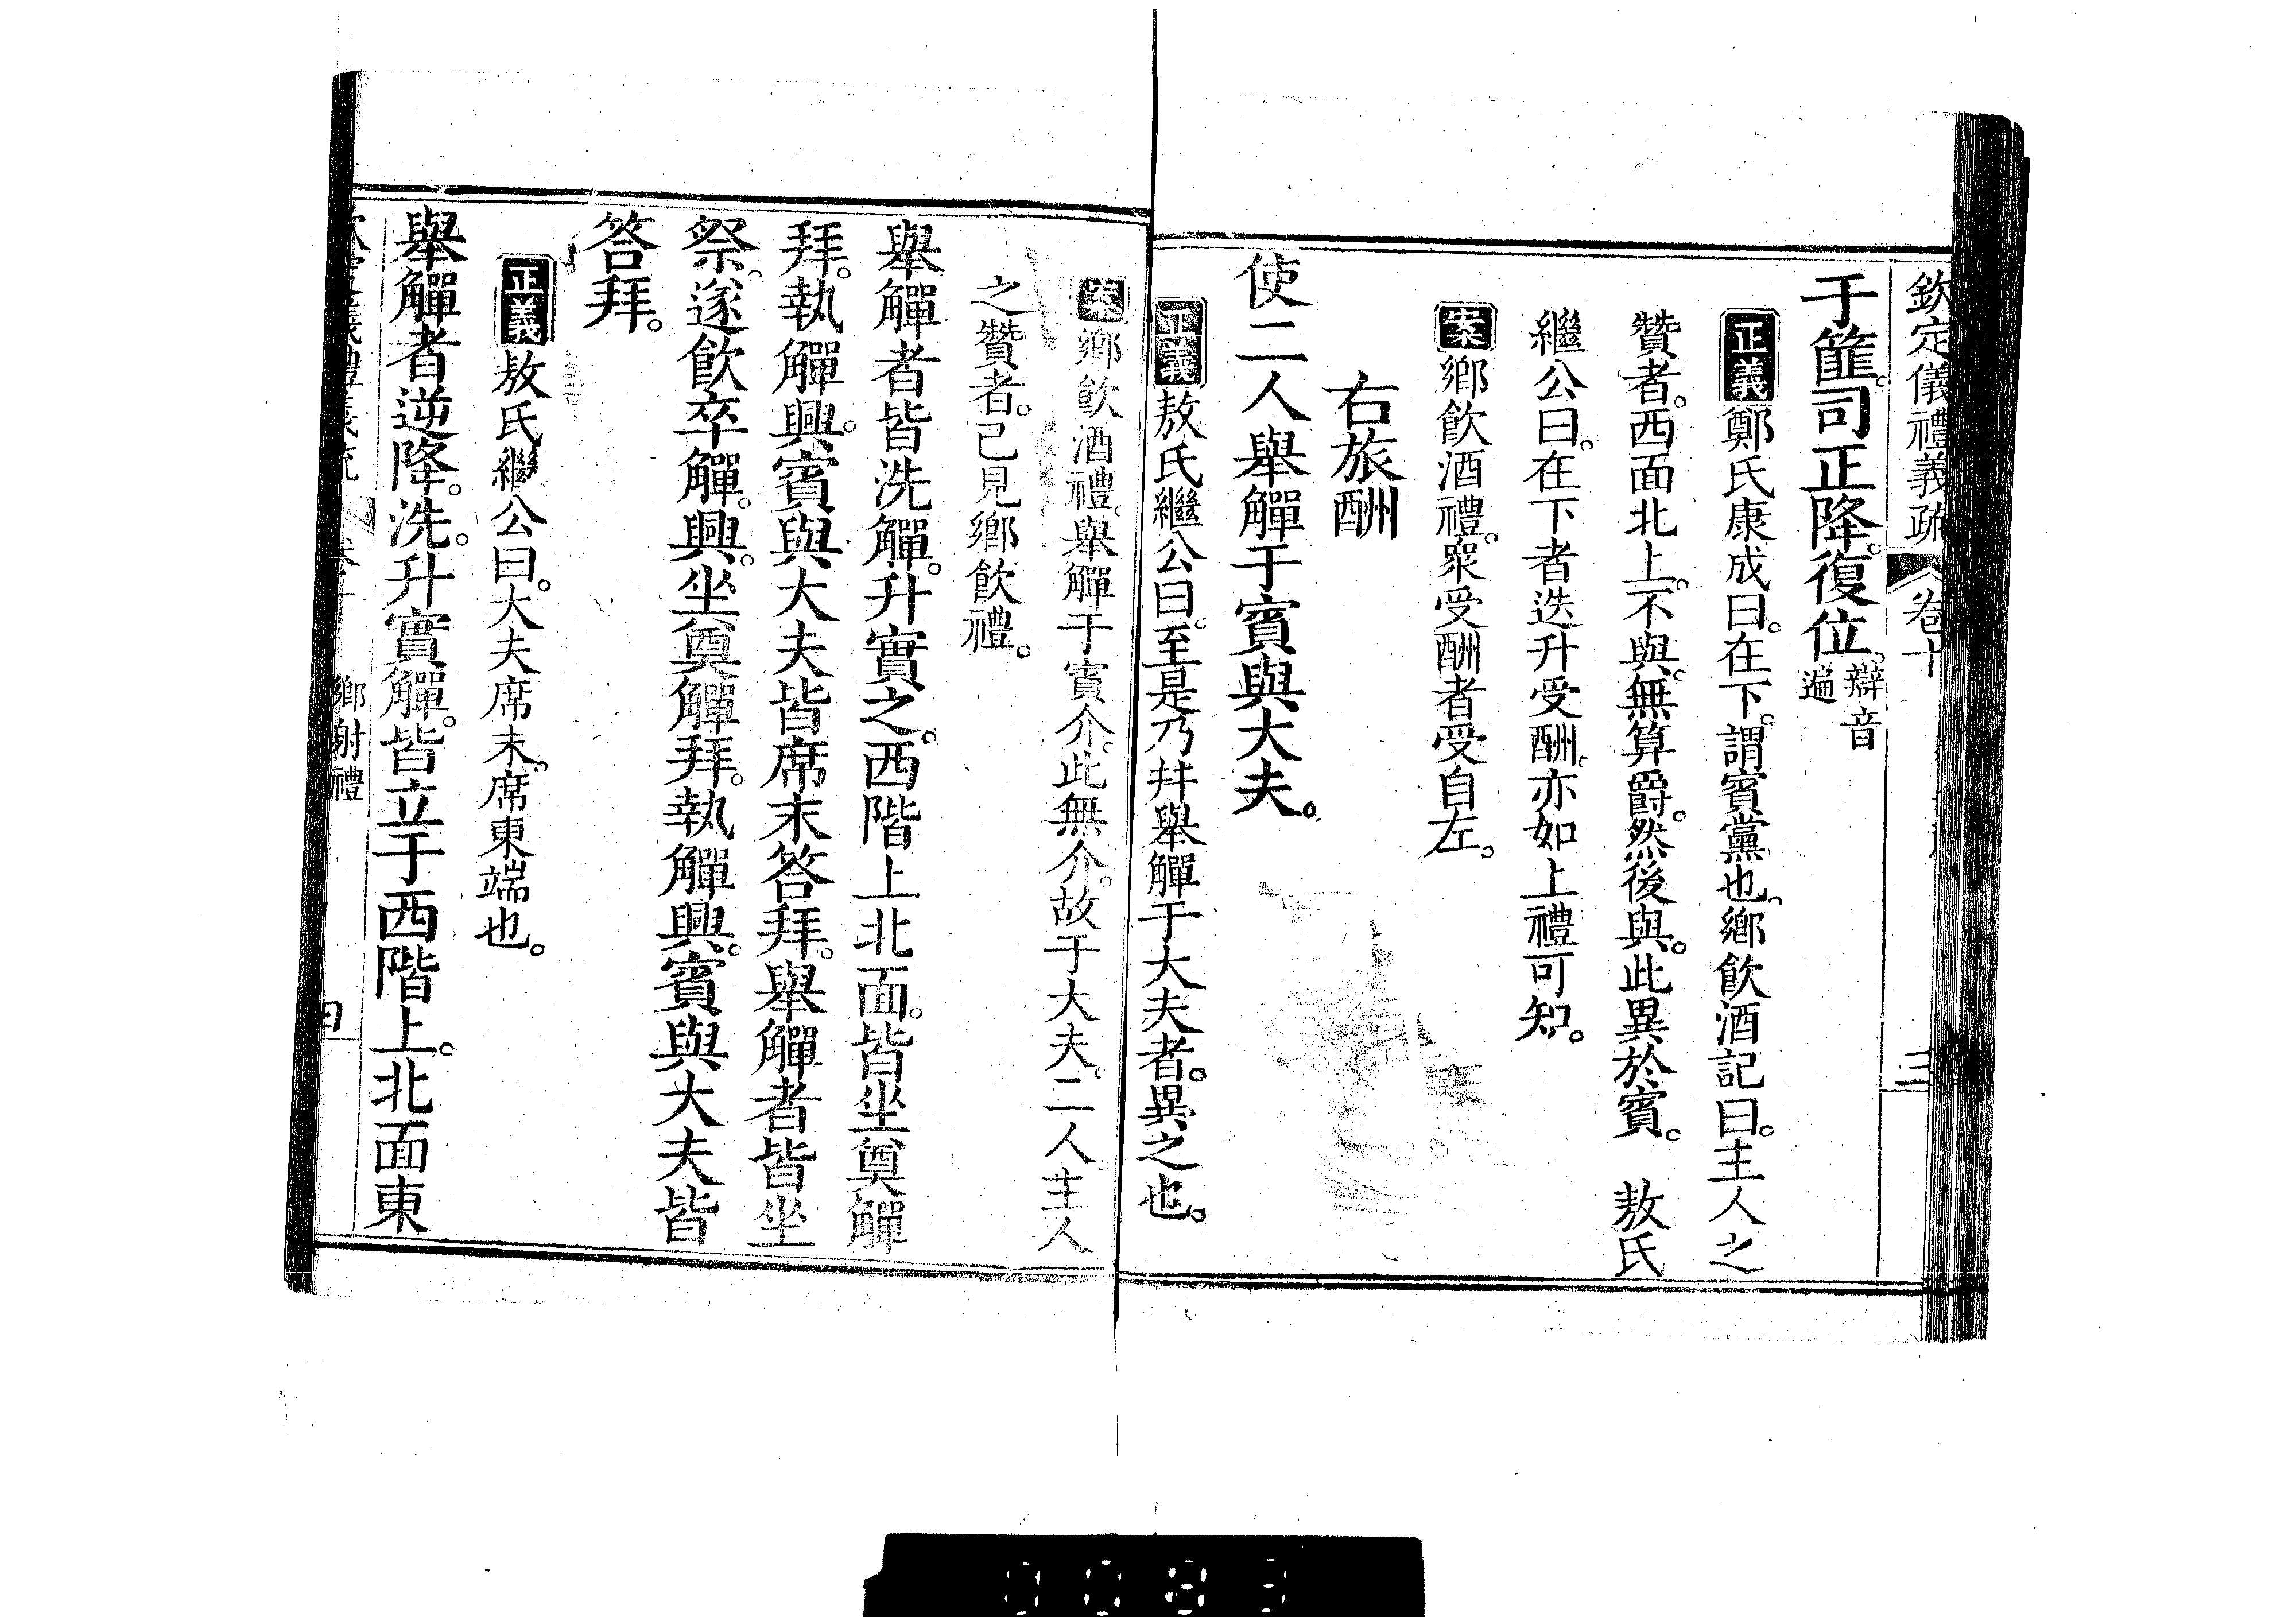 欽定儀禮義疏 卷十 三
于篚。司正降。復位。辯音遍
正義鄭氏康成曰。在下。謂賓黨也。鄉飲酒記曰。主人之
贊者。西面北上。不與。無算爵。然後與。此異於賓。 敖氏
繼公曰。在下者迭升受酬。亦如上禮可知。
案鄉飲酒禮。眾受酬者受自左。
右旅酬
使二人舉觶于賓與大夫。
正義敖氏繼公曰。至是乃幷舉觶于大夫者。異之也。
案鄉飲酒禮。舉觶于賓介。此無介。故于大夫。二人主人
之贊者。已見鄉飲禮。
舉觶者皆洗觶。升實之。西階上北面。皆坐奠觶
拜。執觶興。賓與大夫皆席末答拜。舉觶者皆坐
祭。遂飲卒觶。興。坐奠觶拜。執觶興。賓與大夫皆
答拜。
正義敖氏繼公曰。大夫席末。席東端也。
舉觶者逆降。洗。升實觶。皆立于西階上。北面東
鄉射禮